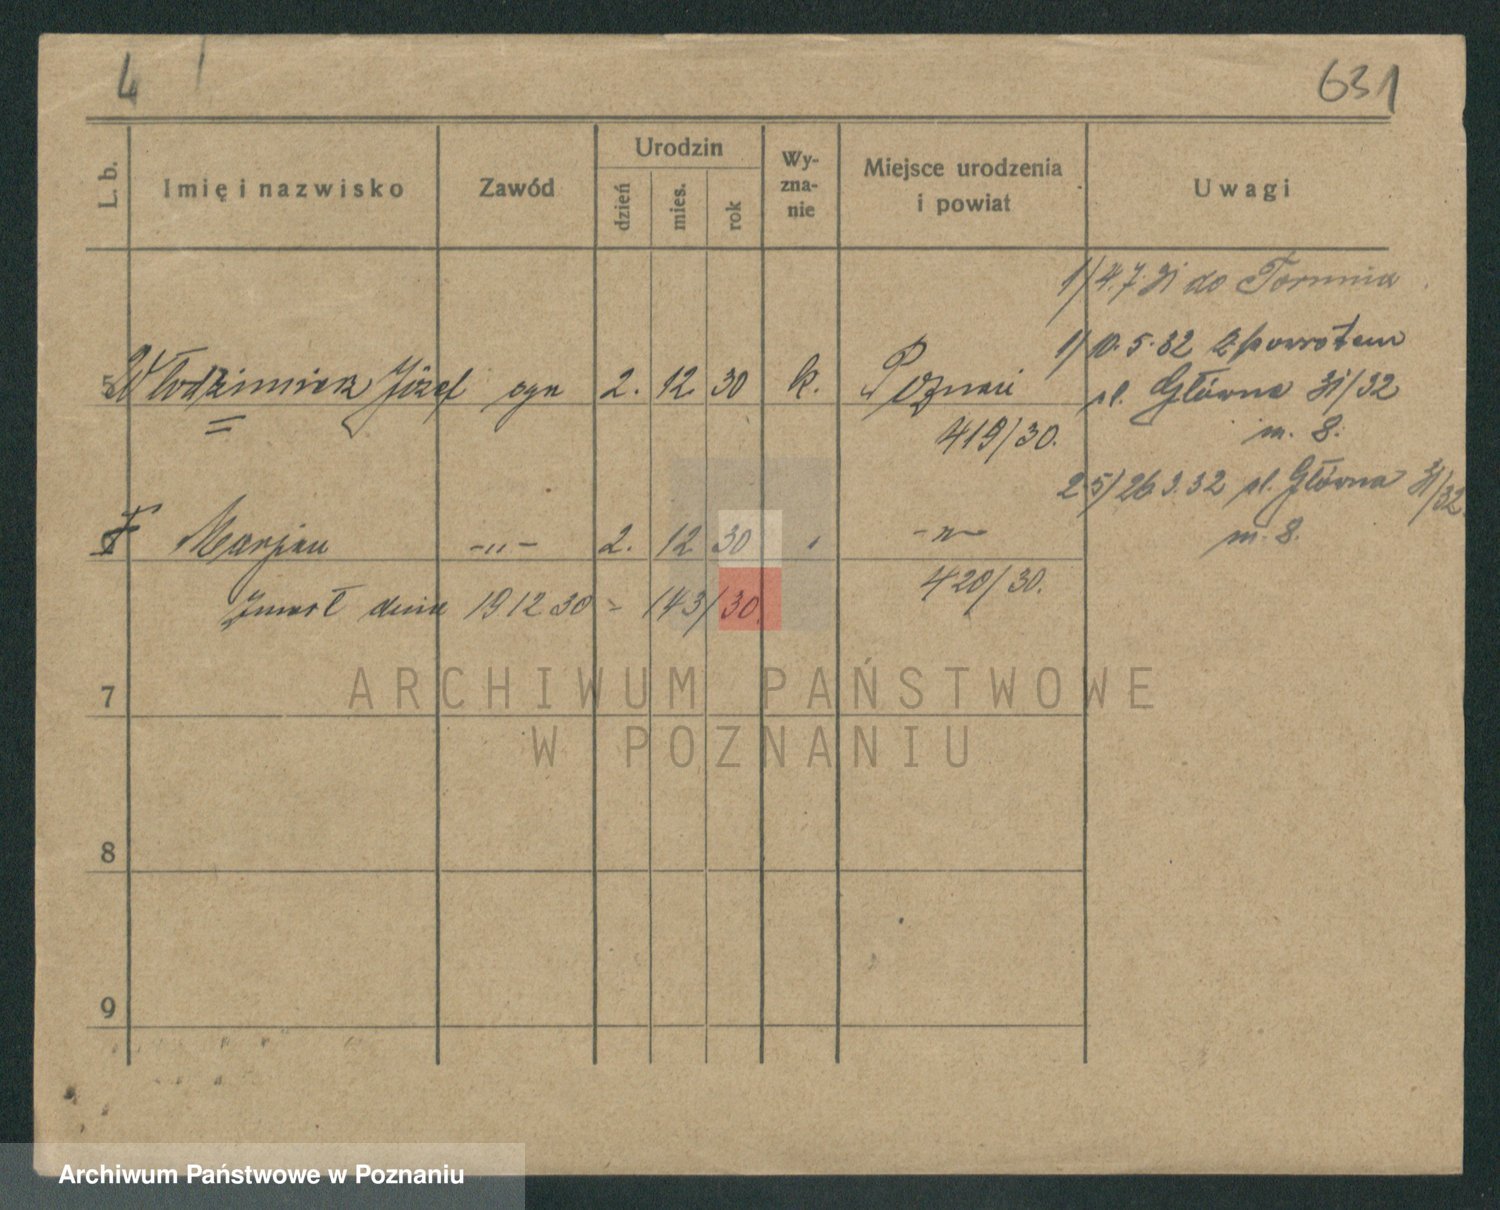 4 631
L. b. Imię i nazwisko Zawód Urodzin dzień mies. rok Wy-zna-nie Miejsce urodzenia i powiat Uwagi
1) 4.7.31 do Torunia
1) 10.5.32 z powrotem
5 Włodzimierz Józef syn 2. 12 30 k. Poznań
pl. Główna 31/32
419/30.
m. 8.
2-5) 26.3.32 pl. Główna 31/32
m. 8.
Marjan -„- 2. 12 30 -„-
420/30.
Zmarł dnia 19 12 30 = 143/30.
7
ARCHIWUM PAŃSTWOWE
W POZNANIU
8
9
Archiwum Państwowe w Poznaniu